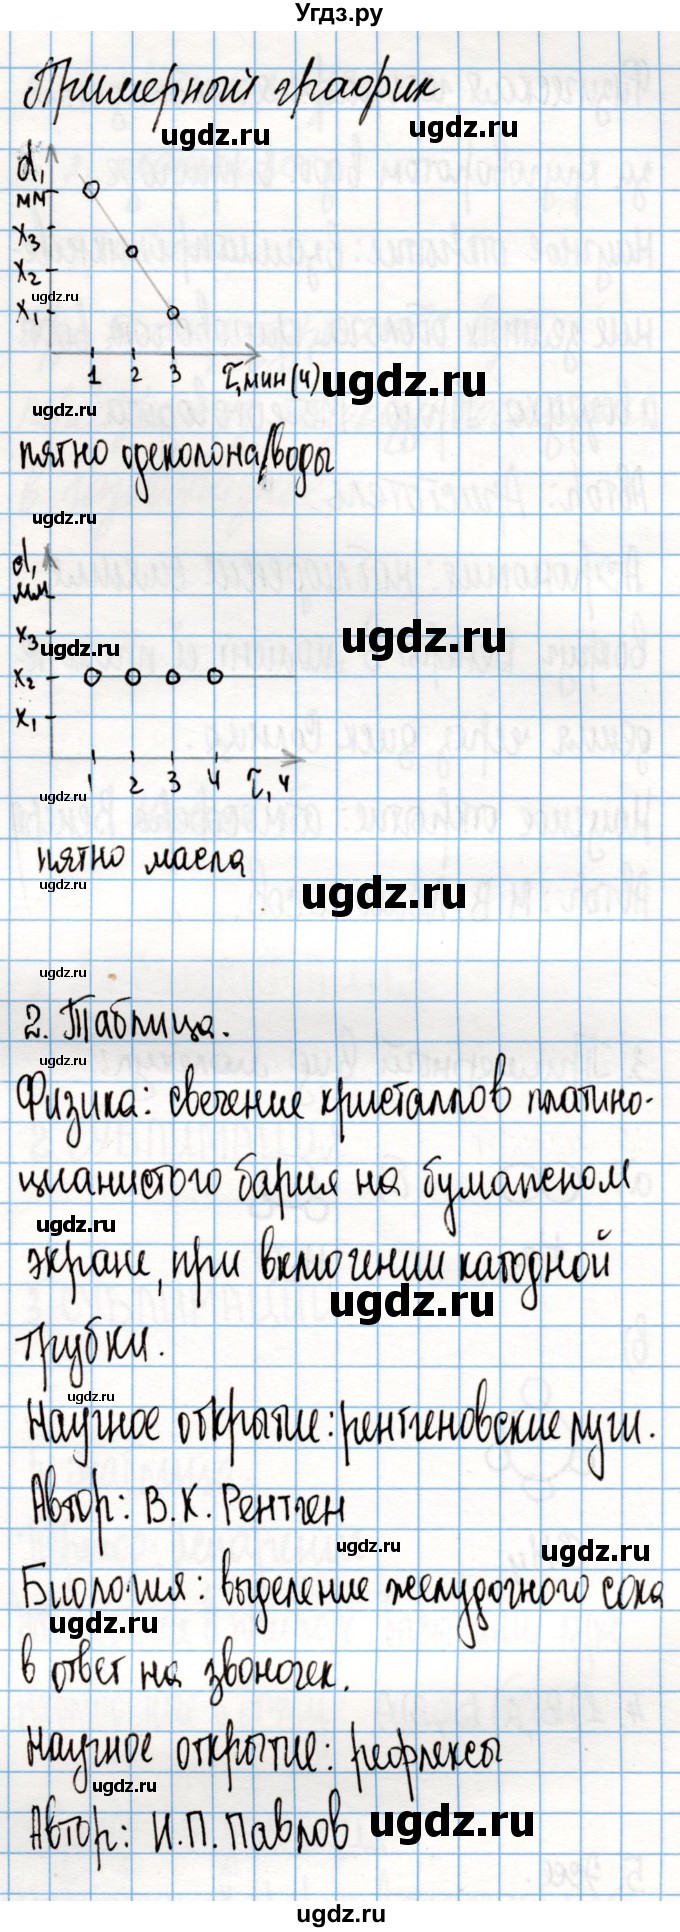 Угдз.ру
Примерный график
ugdz.ru ugdz.ru
d,
мм
x3
x2
ugdz.ru
x1
1 2 3 τ, мин (ч) ugdz.ru
ugdz.ru
пятно одеколона/воды
ugdz.ru
d,
мм
x3 ugdz.ru
ugdz.ru
x2
x1
1 2 3 4 τ, ч
ugdz.ru
пятно масла
ugdz.ru ugdz.ru
ugdz.ru
2. Таблица.
ugdz.ru
Физика: свечение кристаллов платино-
цианистого бария на бумажном
ugdz.ru
экране, при включении катодной
ugdz.ru
трубки.
ugdz.ru
Научное открытие: рентгеновские лучи.
Автор: В.К. Рентген
ugdz.ru ugdz.ru
Биология: выделение желудочного сока
ugdz.ru
в ответ на звоночек.
Научное открытие: рефлексы
ugdz.ru
Автор: И.П. Павлов ugdz.ru
ugdz.ru